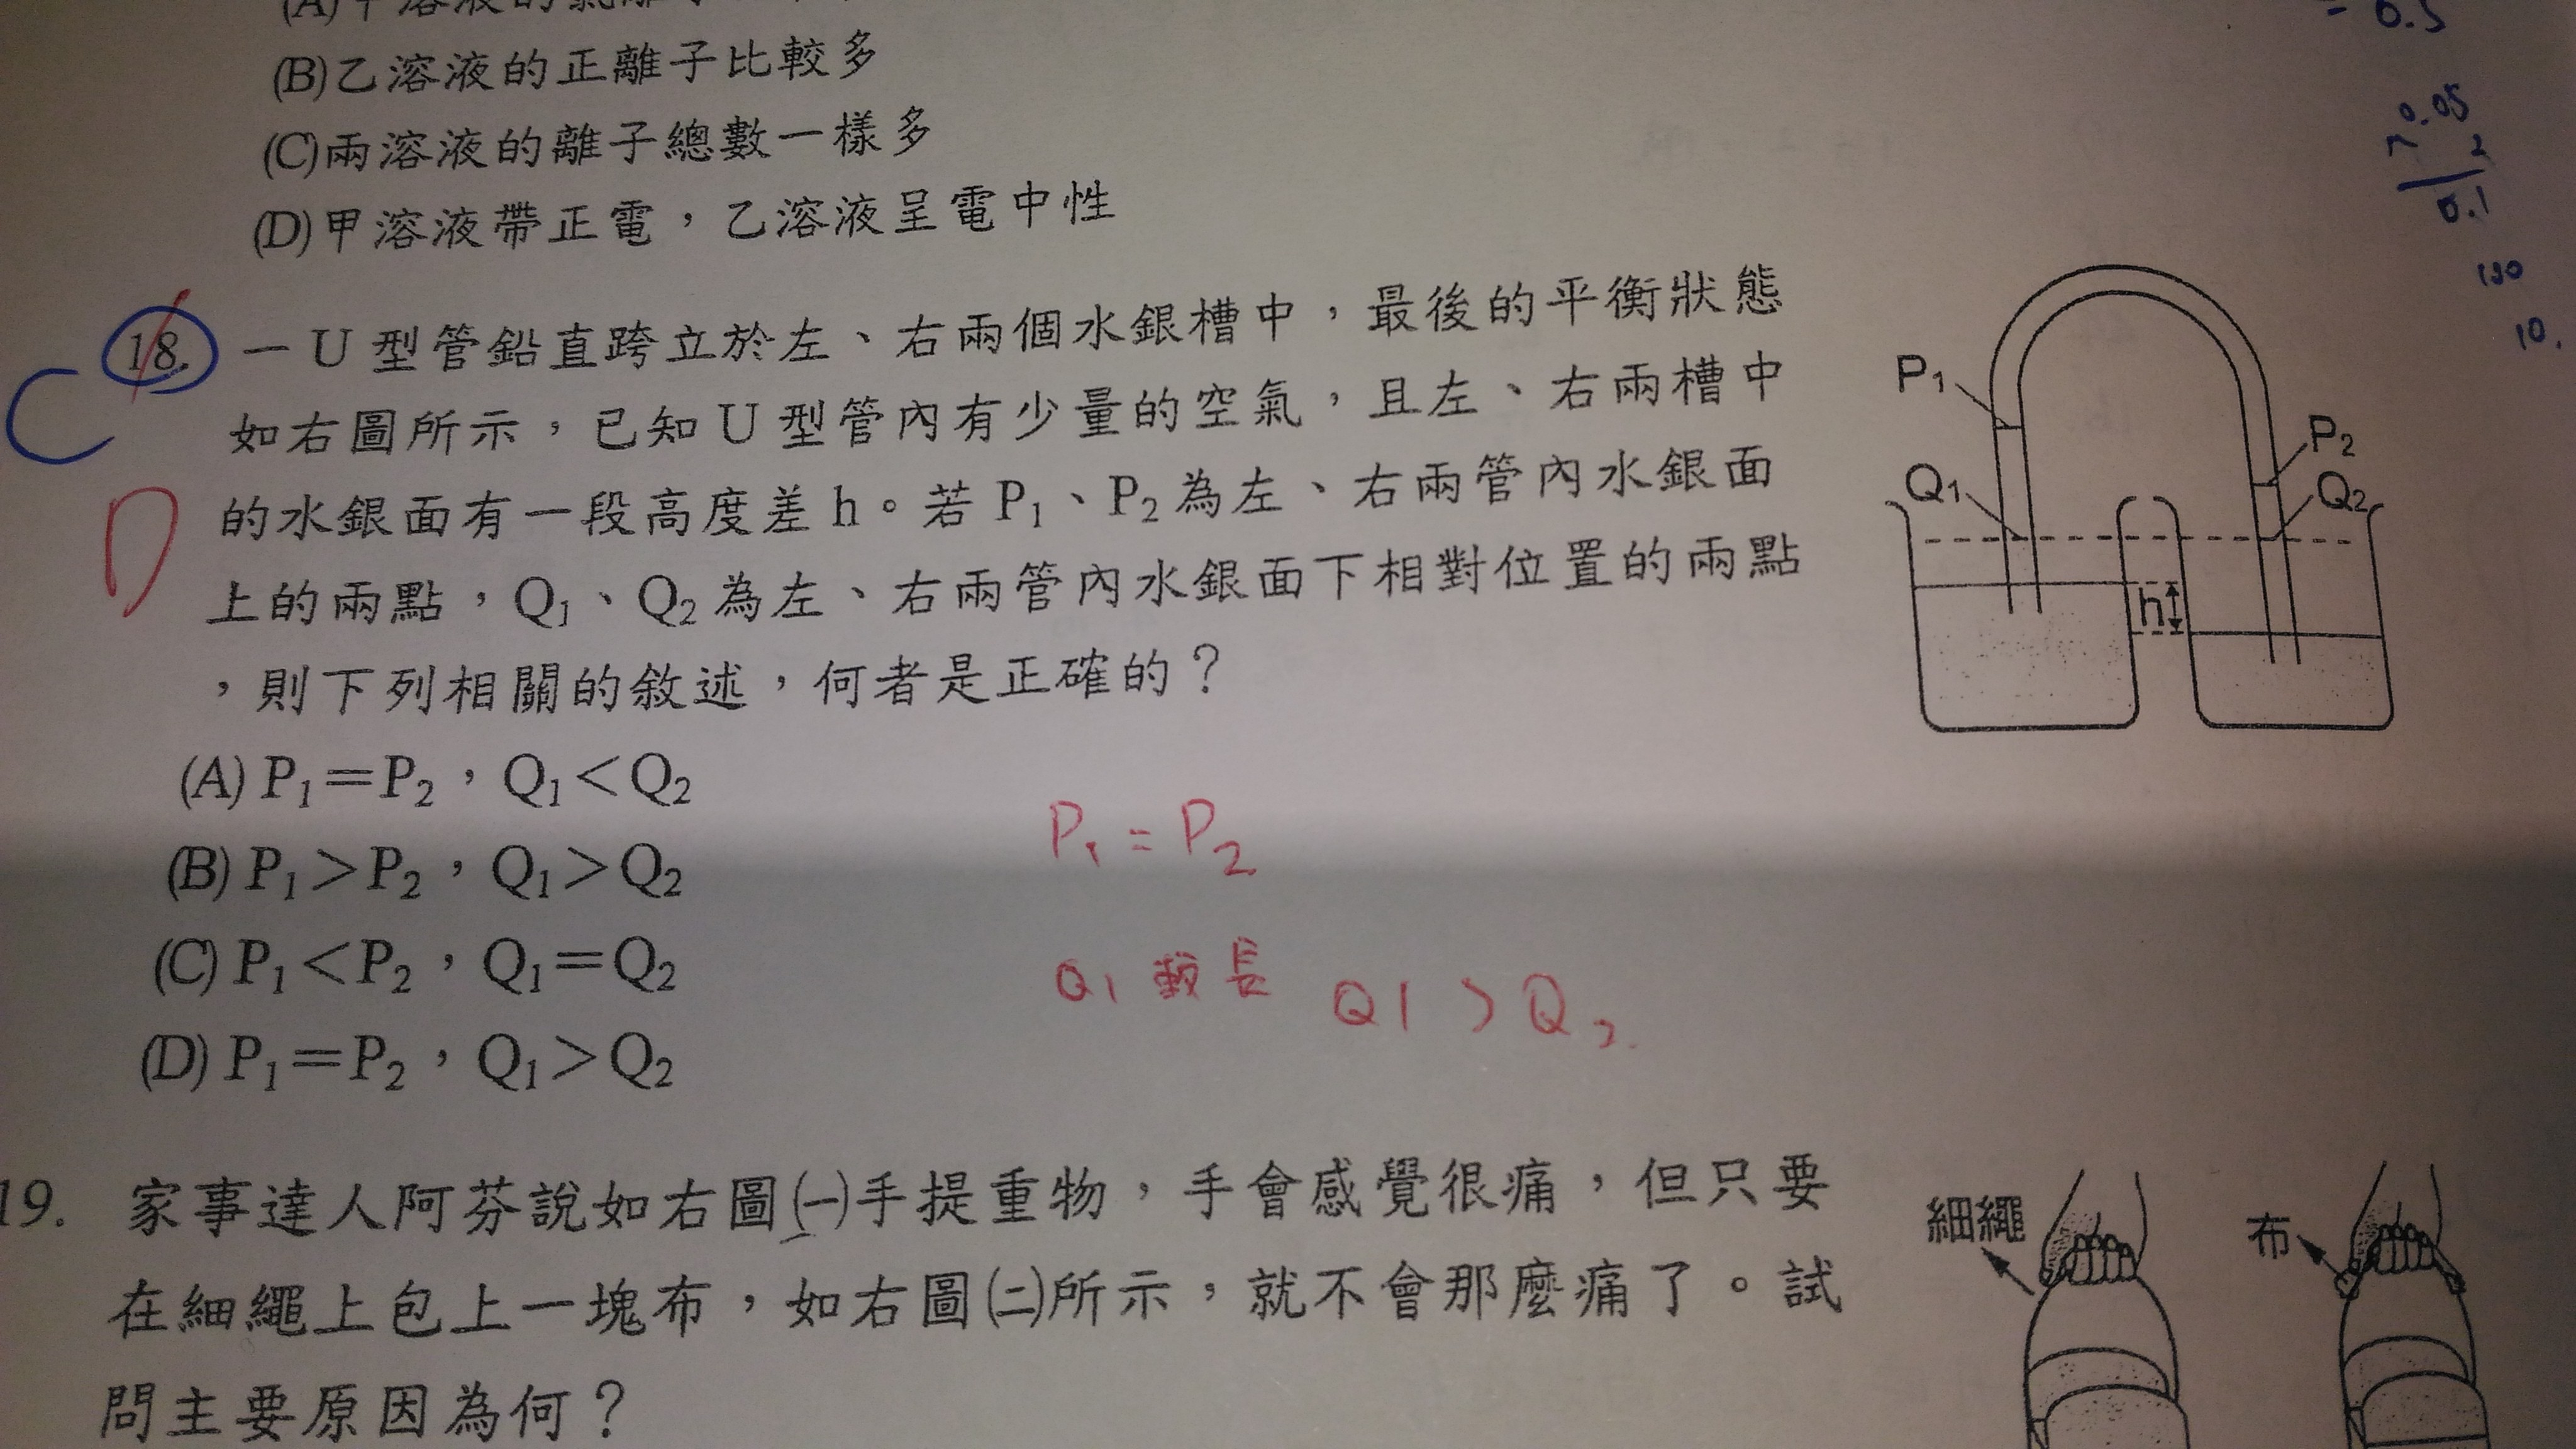 (B)乙溶液的正離子比較多
(C)兩溶液的離子總數一樣多
(D)甲溶液帶正電，乙溶液呈電中性
= 0.5
0.05
2
0.1
10.
C
D
18. 一 U 型管鉛直跨立於左、右兩個水銀槽中，最後的平衡狀態
如右圖所示，已知 U 型管內有少量的空氣，且左、右兩槽中
的水銀面有一段高度差 h。若 P₁、P₂ 為左、右兩管內水銀面
上的兩點，Q₁、Q₂ 為左、右兩管內水銀面下相對位置的兩點
，則下列相關的敘述，何者是正確的？
P₁
P₂
Q₁
Q₂
h
(A) P₁＝P₂，Q₁＜Q₂
(B) P₁＞P₂，Q₁＞Q₂
(C) P₁＜P₂，Q₁＝Q₂
(D) P₁＝P₂，Q₁＞Q₂
P₁ = P₂
Q₁ 較長 Q1 > Q₂
19. 家事達人阿芬說如右圖㈠手提重物，手會感覺很痛，但只要
在細繩上包上一塊布，如右圖㈡所示，就不會那麼痛了。試
問主要原因為何？
細繩
布